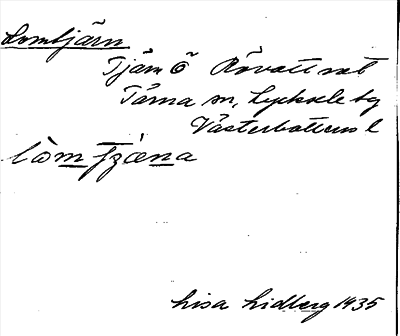 Lomtjärn
Tjärn Ö Rövattnet
Tärna sn, Lycksele tg
Västerbottens l
lòm fzæna
Lisa Lidberg 1935